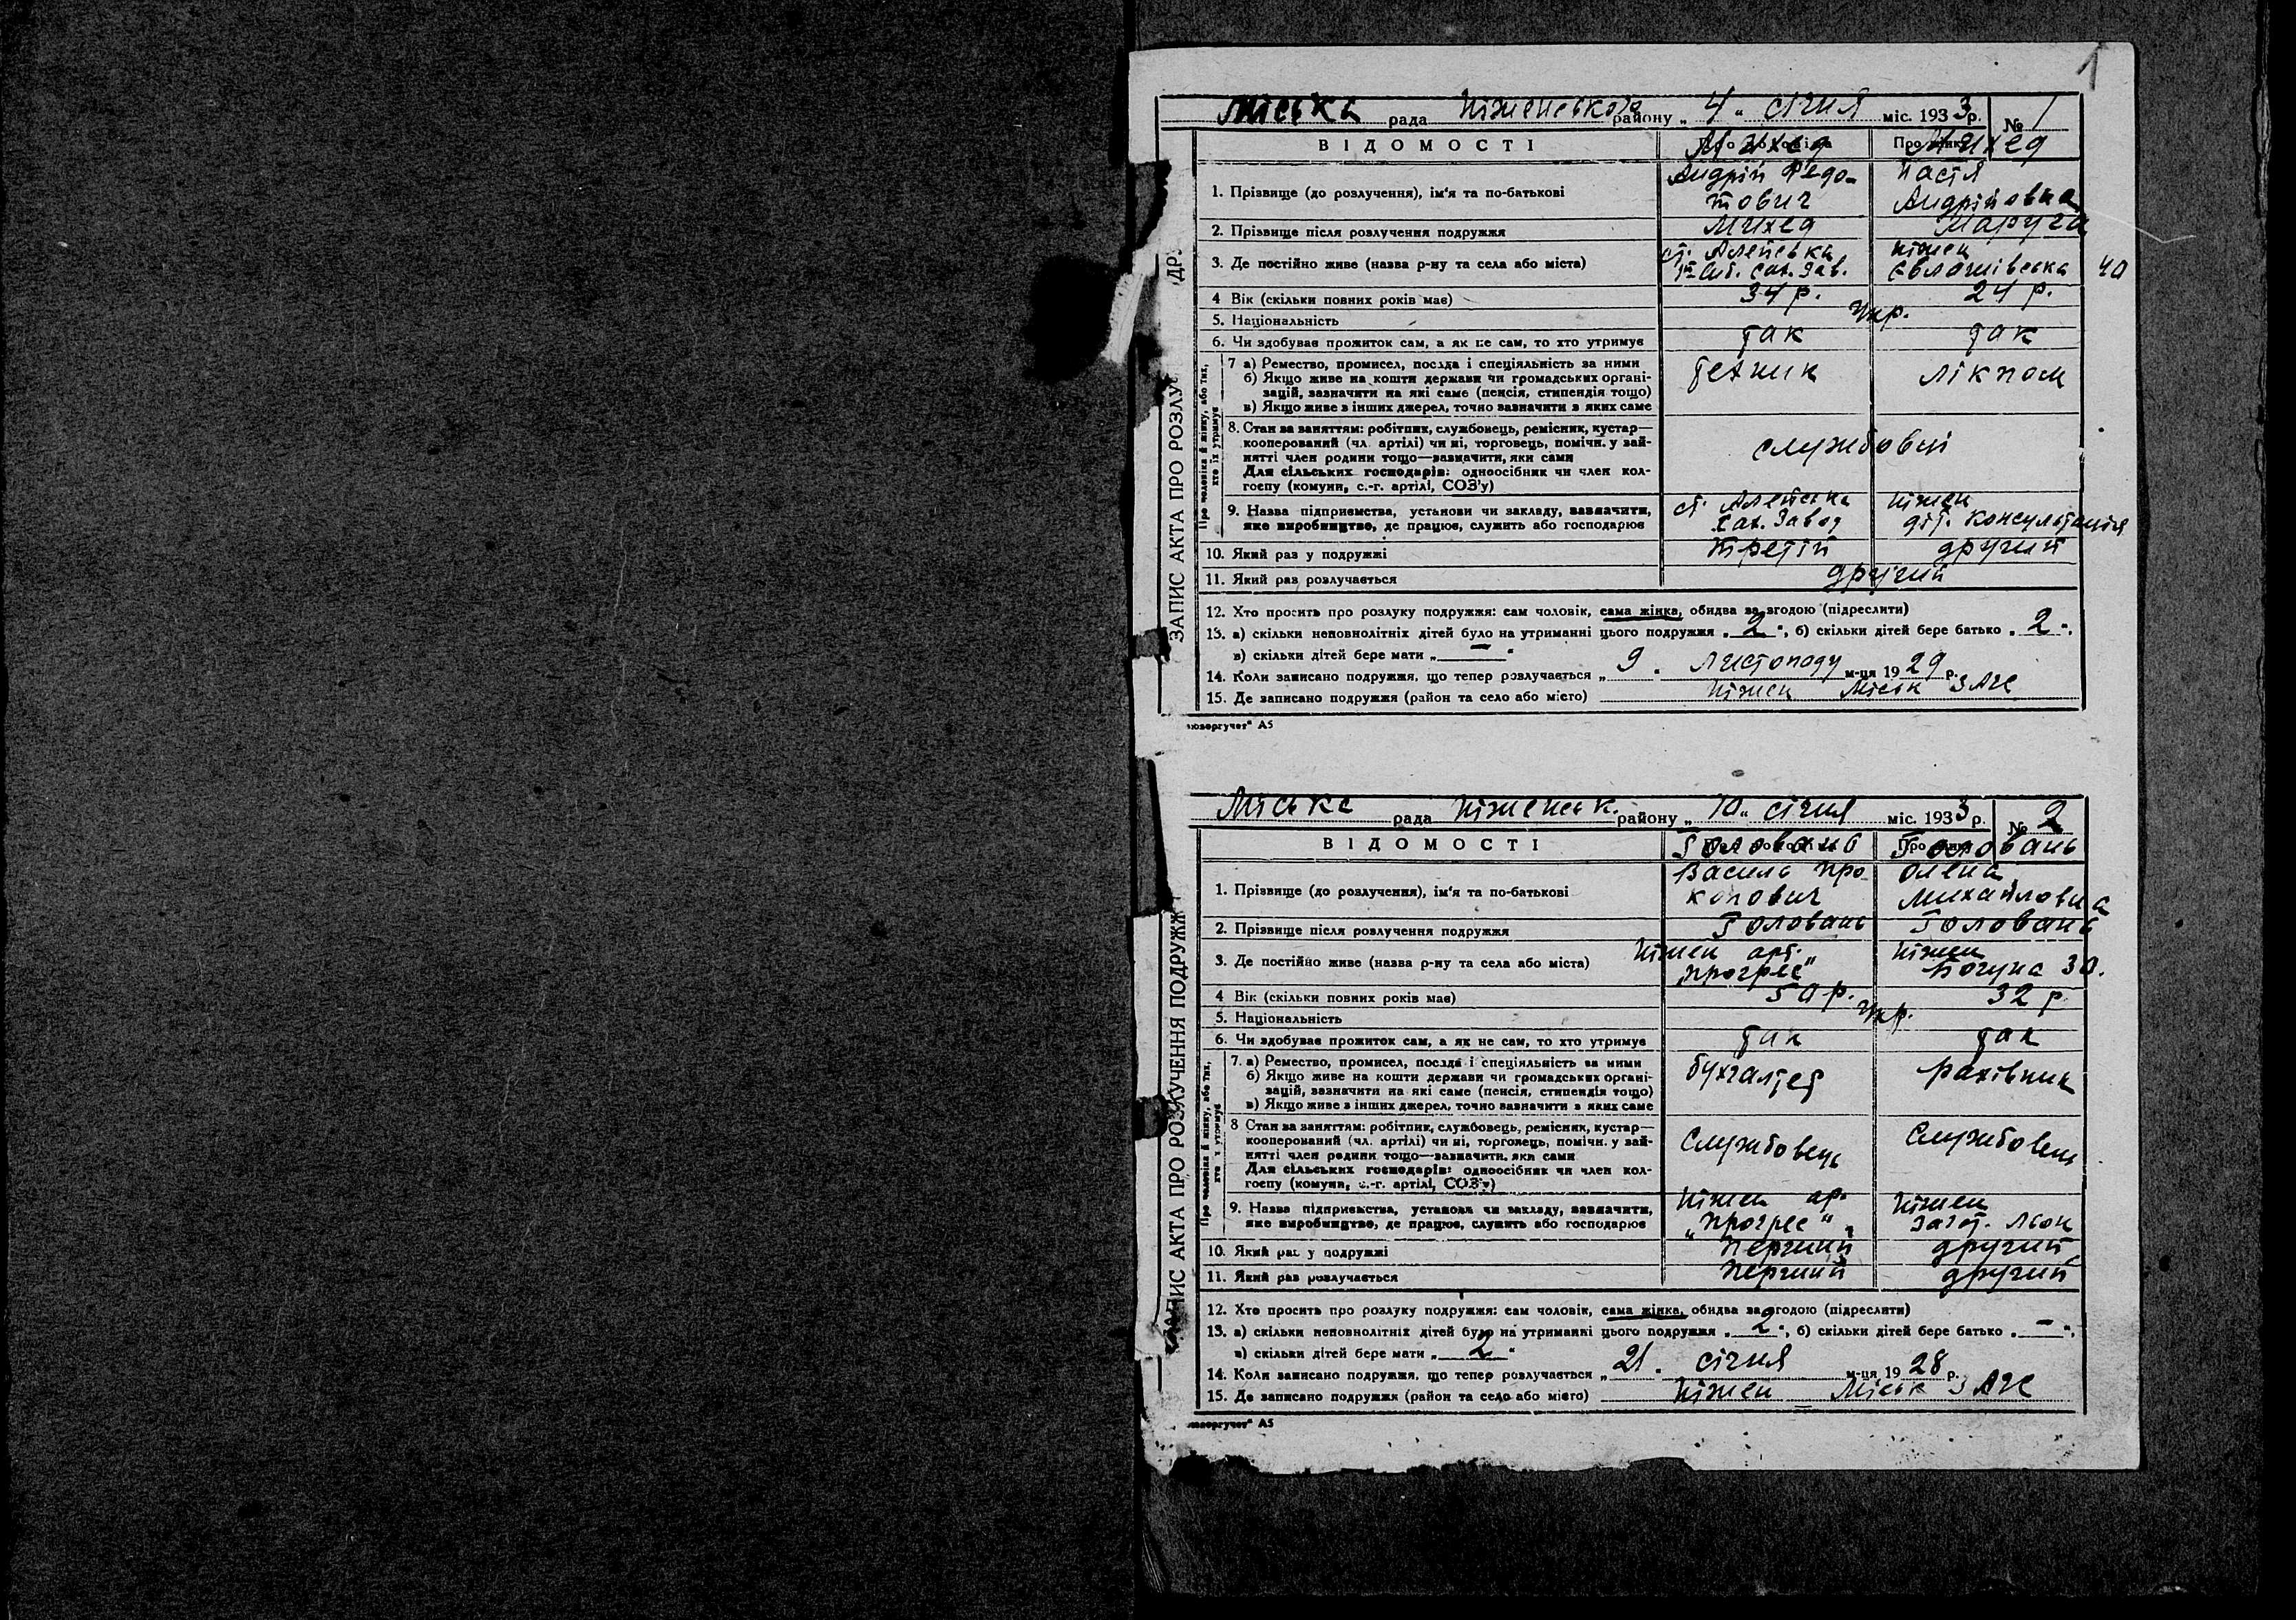 1
Міська рада Ніженського району „ 4 " січня міс. 1933 р. № 1
ВІДОМОСТІ Про чоловіка Про жінку
Михед Михед
1. Прізвище (до розлучення), ім'я та по-батькові Андрій Федо- Настя
тович Андріївна
2. Прізвище після розлучення подружжя Михед
3. Де постійно живе (назва р-ну та села або міста) ст. Алейська Ніжен
Сах. Зав. 40
4 Вік (скільки повних років має) 34 р. 24 р.
5. Національність Укр.
6. Чи здобуває прожиток сам, а як не сам, то хто утримує так так
Про чоловіка й жінку, або тих, хто їх утримує
7 а) Ремество, промисел, посада і спеціяльність за ними технік лікпом
б) Якщо живе на кошти держави чи громадських органі-
зацій, зазначити на які саме (пенсія, стипендія тощо)
в) Якщо живе з інших джерел, точно зазначити з яких саме
8. Стан за заняттям: робітник, службовець, ремісник, кустар—
кооперований (чл. артілі) чи ні, торговець, помічн. у зай-
нятті член родини тощо—зазначити, яки сами службовці
Для сільських господарів: одноосібник чи член кол-
госпу (комуни, с.-г. артілі, СОЗ'у)
9. Назва підприємства, установи чи закладу, зазначити, ст. Алейська Ніжен
яке виробництво, де працює, служить або господарює Сах. Завод діт. консультація
10. Який раз у подружжі третій другий
11. Який раз розлучається другий
12. Хто просить про розлуку подружжя: сам чоловік, сама жінка, обидва за згодою (підреслити)
13. а) скільки неповнолітніх дітей було на утриманні цього подружжя „ 2 ", б) скільки дітей бере батько „ 2 ",
в) скільки дітей бере мати „ — "
14. Коли записано подружжя, що тепер розлучається „ 9 " Листопаду м-ця 1929 р.
15. Де записано подружжя (район та село або місто) Ніжен Міськ ЗАГС
ЗАПИС АКТА ПРО РОЗЛУ
А5
Міська рада Ніженськ. району „ 10 " січня міс. 1933 р. № 2
ВІДОМОСТІ Про чоловіка Про жінку
Головань Головань
1. Прізвище (до розлучення), ім'я та по-батькові Василь Про Олена
копович Михайловна
2. Прізвище після розлучення подружжя Головань Головань
3. Де постійно живе (назва р-ну та села або міста) Ніжен арт. Ніжен
„Прогрес" Богуна 30.
4 Вік (скільки повних років має) 50 р. 32 р
5. Національність Укр.
6. Чи здобуває прожиток сам, а як не сам, то хто утримує так так
Про чоловіка й жінку, або тих, хто їх утримує
7. а) Ремество, промисел, посада і спеціяльність за ними бухгалтер рахівник
б) Якщо живе на кошти держави чи громадських органі-
зацій, зазначити на які саме (пенсія, стипендія тощо)
в) Якщо живе з інших джерел, точно зазначити з яких саме
8 Стан за заняттям: робітник, службовець, ремісник, кустар—
кооперований (чл. артілі) чи ні, торговець, помічн. у зай- Службовець Службовець
нятті член родини тощо—зазначити, яки сами
Для сільських господарів: одноосібник чи член кол-
госпу (комуни, с.-г. артілі, СОЗ'у)
9. Назва підприємства, установи чи закладу, зазначити, Ніжен ар. Ніжен
яке виробництво, де працює, служить або господарює „Прогрес" Загот. льон
10. Який раз у подружжі перший другий
11. Який раз розлучається перший другий
12. Хто просить про розлуку подружжя: сам чоловік, сама жінка, обидва за згодою (підреслити)
13. а) скільки неповнолітніх дітей було на утриманні цього подружжя „ 2 ", б) скільки дітей бере батько „ — ",
в) скільки дітей бере мати „ 2 "
14. Коли записано подружжя, що тепер розлучається „ 21 " січня м-ця 1928 р.
15. Де записано подружжя (район та село або місто) Ніжен Міськ ЗАГС
ЗАПИС АКТА ПРО РОЗЛУЧЕННЯ ПОДРУЖЖ
А5